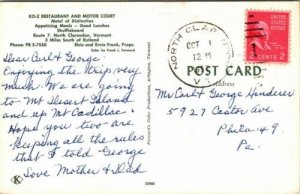 KO-Z RESTAURANT AND MOTOR COURT
Motel of Distinction
Appetizing Meals - Good Lunches
Shuffleboard
Route 7, North Clarendon, Vermont
3 Miles South of Rutland
Phone: PR 3-7550 Elsie and Ernie Frank, Props.
Dear Carl & George
Enjoying the trip very
much. We are going
to Mt Desert Island
and up Mt Cadillac.
Hope you two are
keeping all the rules
that I told George
Love Mother & Dad
NORTH CLAR
OCT 1
12 M
2 CENTS 2
POST CARD
Address
Mr Carl & George Hinderer
5927 Castor Ave
Phila 49.
Pa.